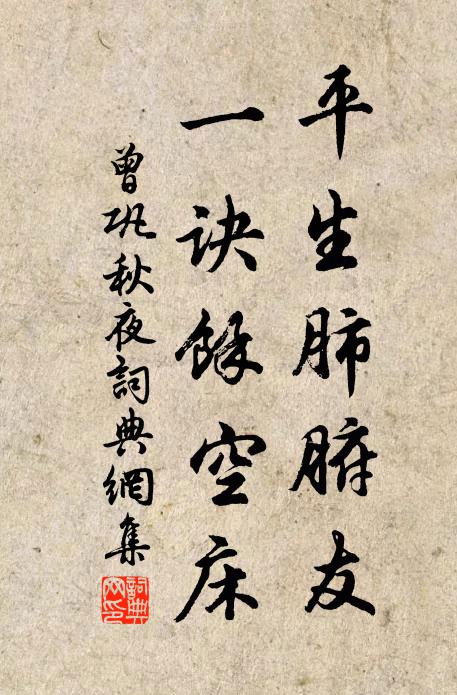 平生肺腑友
一訣餘空床
曾巩秋夜詞典網集
詞典網印